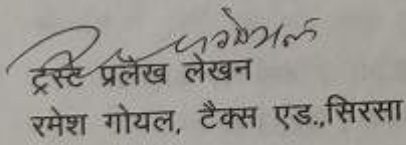 ट्रस्ट प्रलेख लेखन
रमेश गोयल, टैक्स एड.,सिरसा